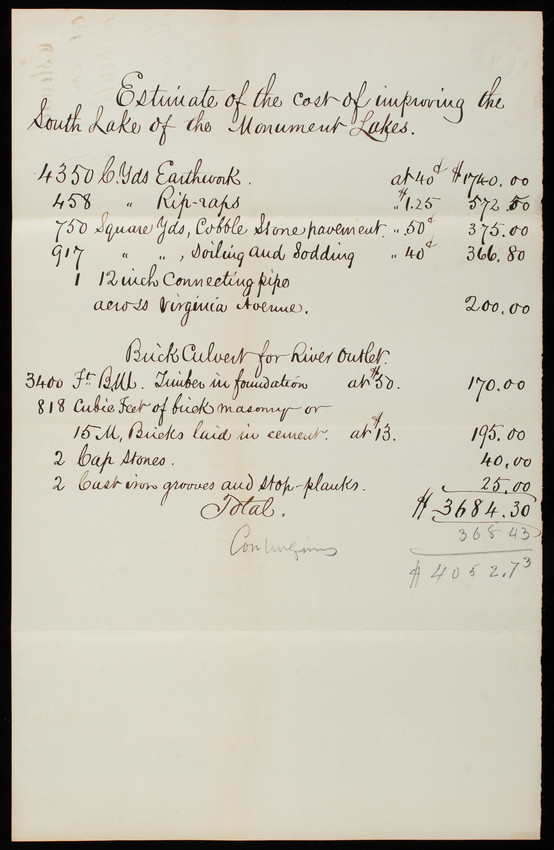 Estimate of the cost of improving the
South Lake of the Monument Lakes.
4350 C. Yds Earthwork. at 40¢ $1740.00
458 " Rip-raps " $1.25 572.50
750 Square Yds, Cobble Stone pavement. " 50¢ 375.00
917 " " , Soiling and Sodding " 40¢ 366.80
1 12 inch Connecting pipe
across Virginia Avenue. 200.00
Brick Culvert for River Outlet.
3400 Ft. B.M. Timber in foundation at $50. 170.00
818 Cubic Feet of brick masonry or
15 M, Bricks laid in cement. at $13. 195.00
2 Cap Stones. 40.00
2 Cast iron grooves and stop-planks. 25.00
Total. $3684.30
368 43
$4052.73